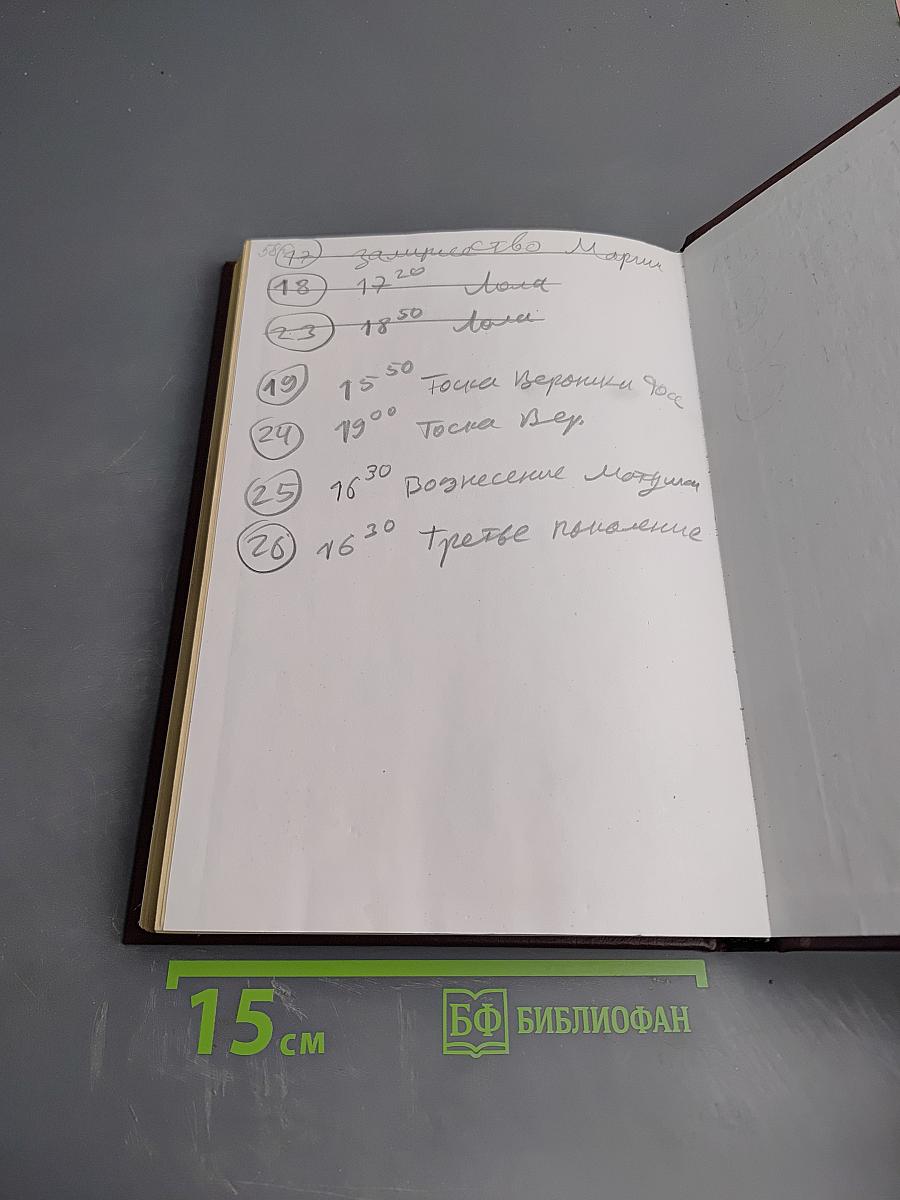 17 замужество Марии
18 17²⁰ Лола
23 18⁵⁰ Лола
19 15⁵⁰ Тоска Вероники Фосс
24 19⁰⁰ Тоска Вер.
25 16³⁰ Вознесение Матушки
26 16³⁰ третье поколение
15 см
БФ БИБЛИОФАН